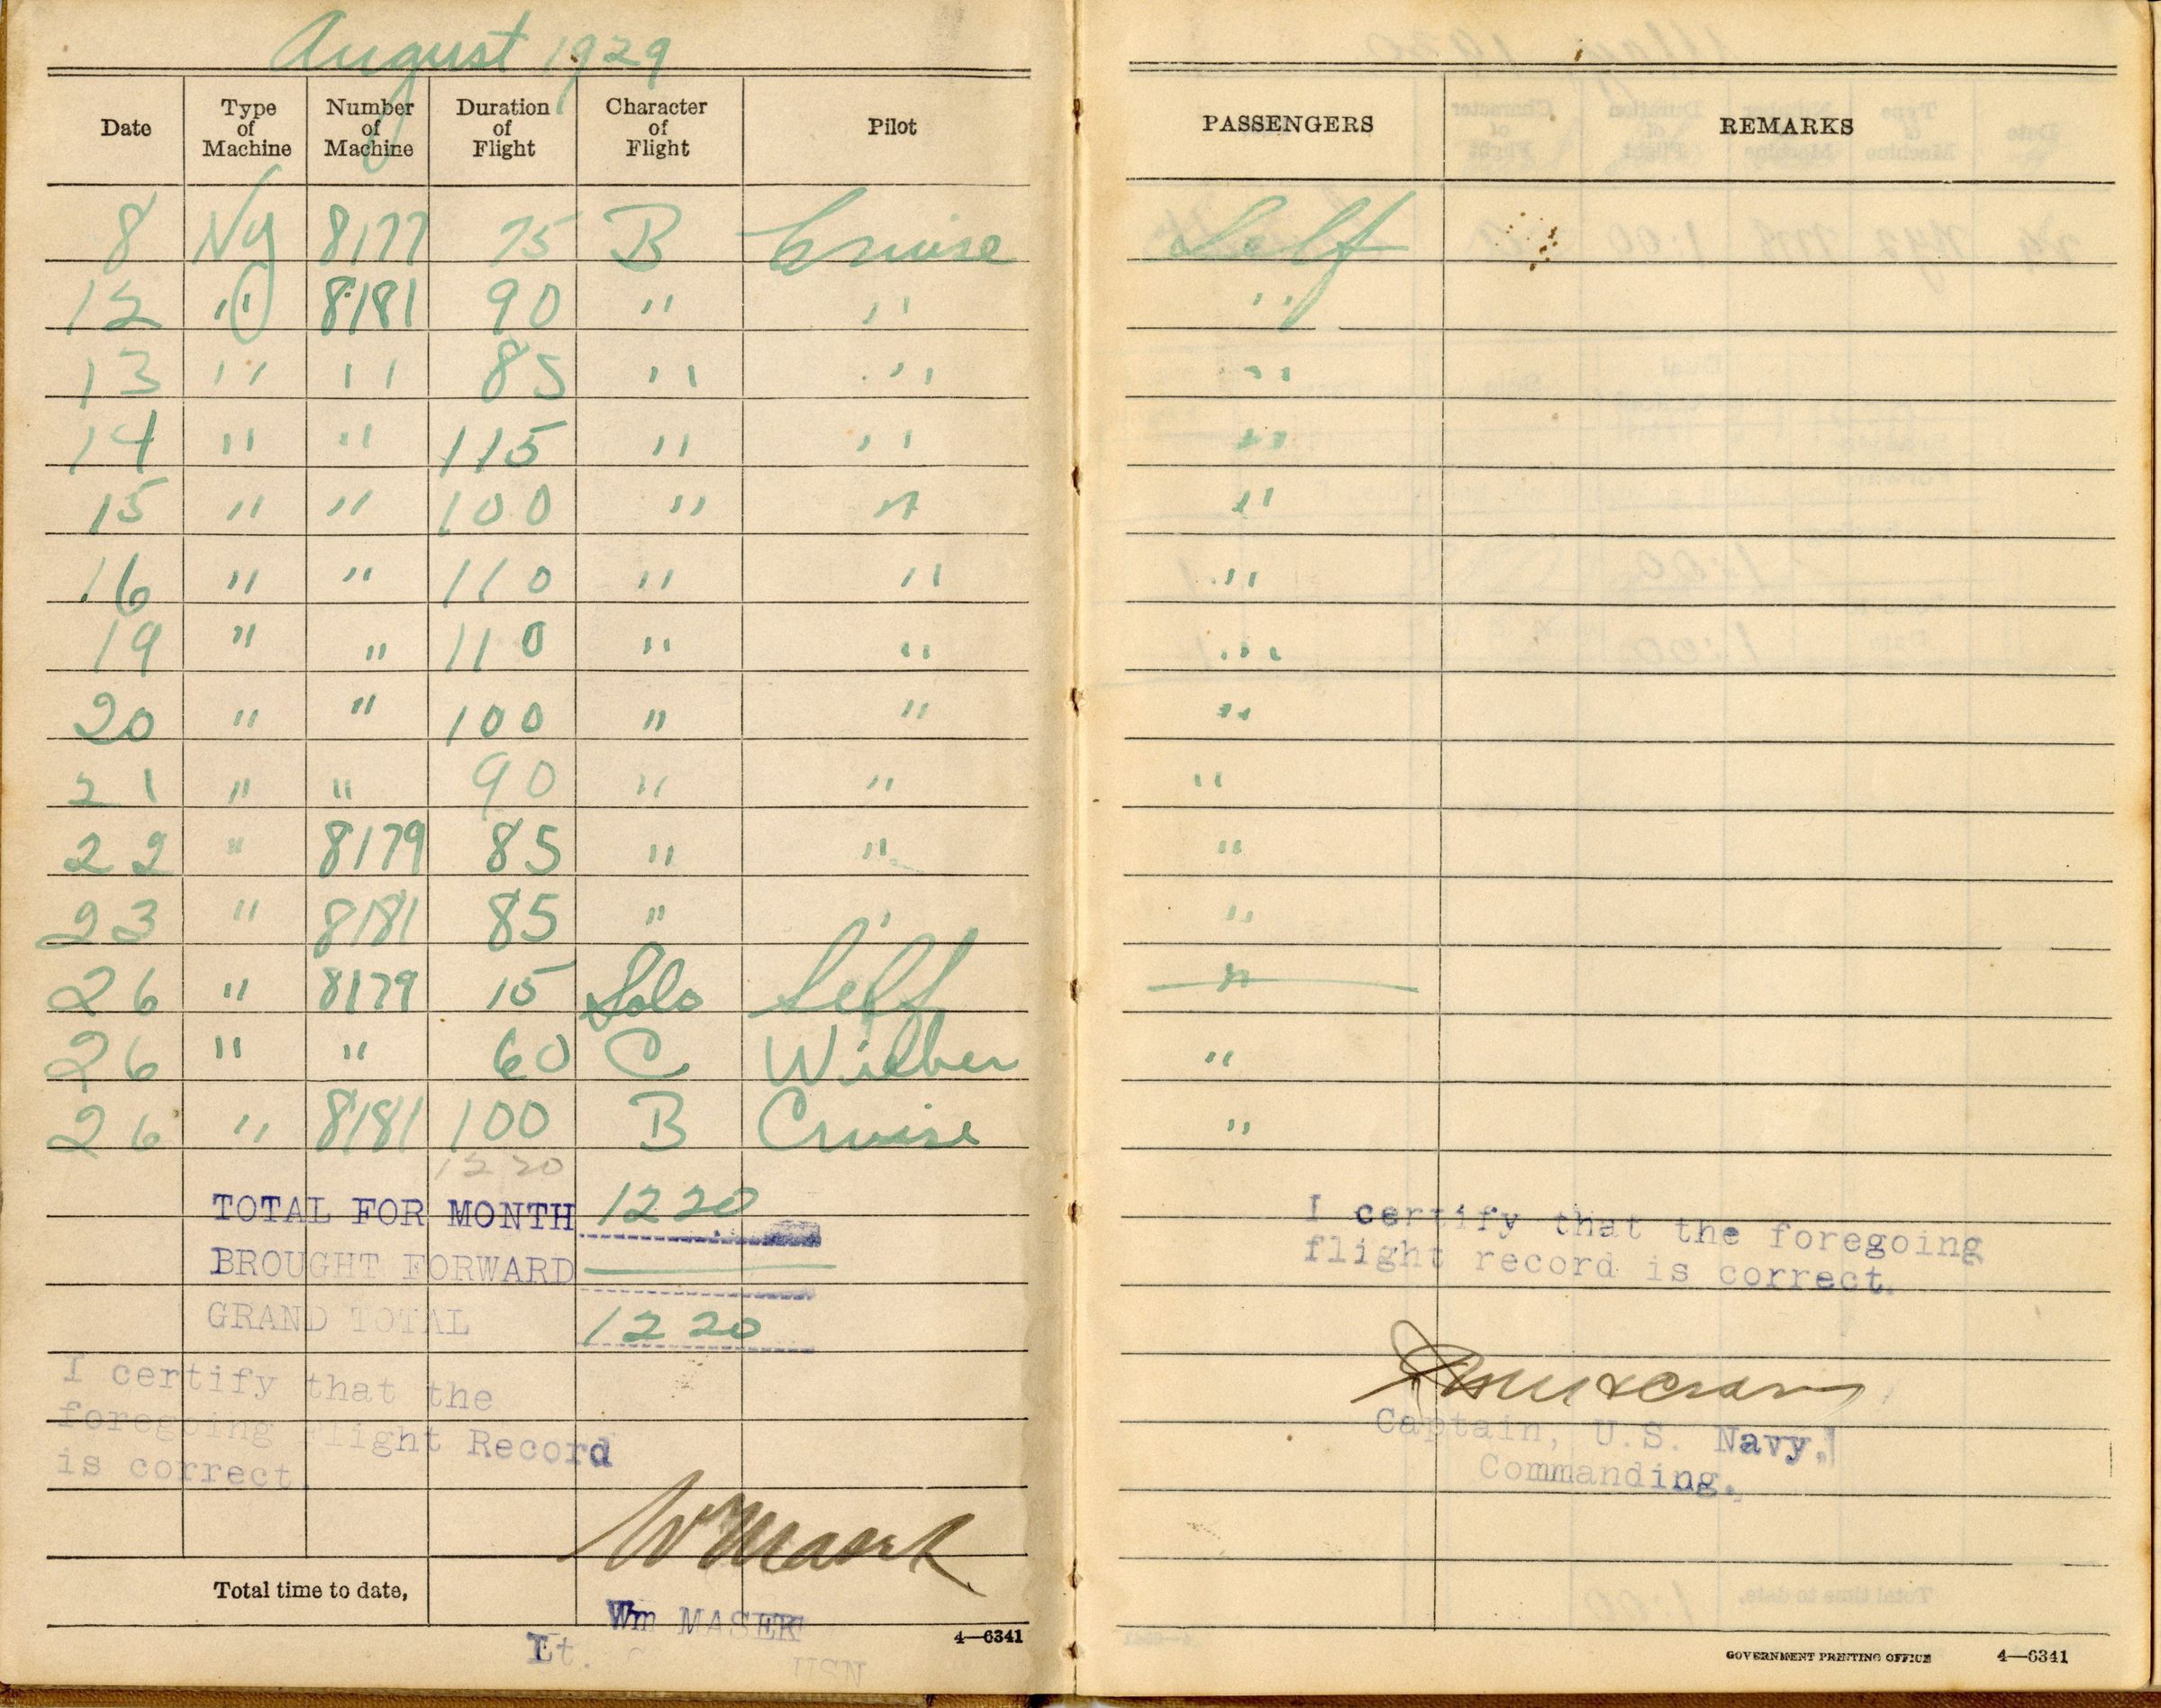 August 1929
Date Type of Machine Number of Machine Duration of Flight Character of Flight Pilot PASSENGERS REMARKS
8 Ny 8177 75 B Cruise Self
12 " 8181 90 " " "
13 " " 85 " " "
14 " " 115 " " "
15 " " 100 " " "
16 " " 110 " " "
19 " " 110 " " "
20 " " 100 " " "
21 " " 90 " " "
22 " 8179 85 " " "
23 " 8181 85 " " "
26 " 8179 15 Solo Self "
26 " " 60 C Wieber "
26 " 8181 100 B Cruise "
1220
TOTAL FOR MONTH 1220
BROUGHT FORWARD
GRAND TOTAL 1220
I certify that the
foregoing Flight Record
is correct.
W Masek
Total time to date,
Wm MASEK
Lt. USN
4—6341
I certify that the foregoing
flight record is correct.
Captain, U.S. Navy,
Commanding.
GOVERNMENT PRINTING OFFICE 4—6341